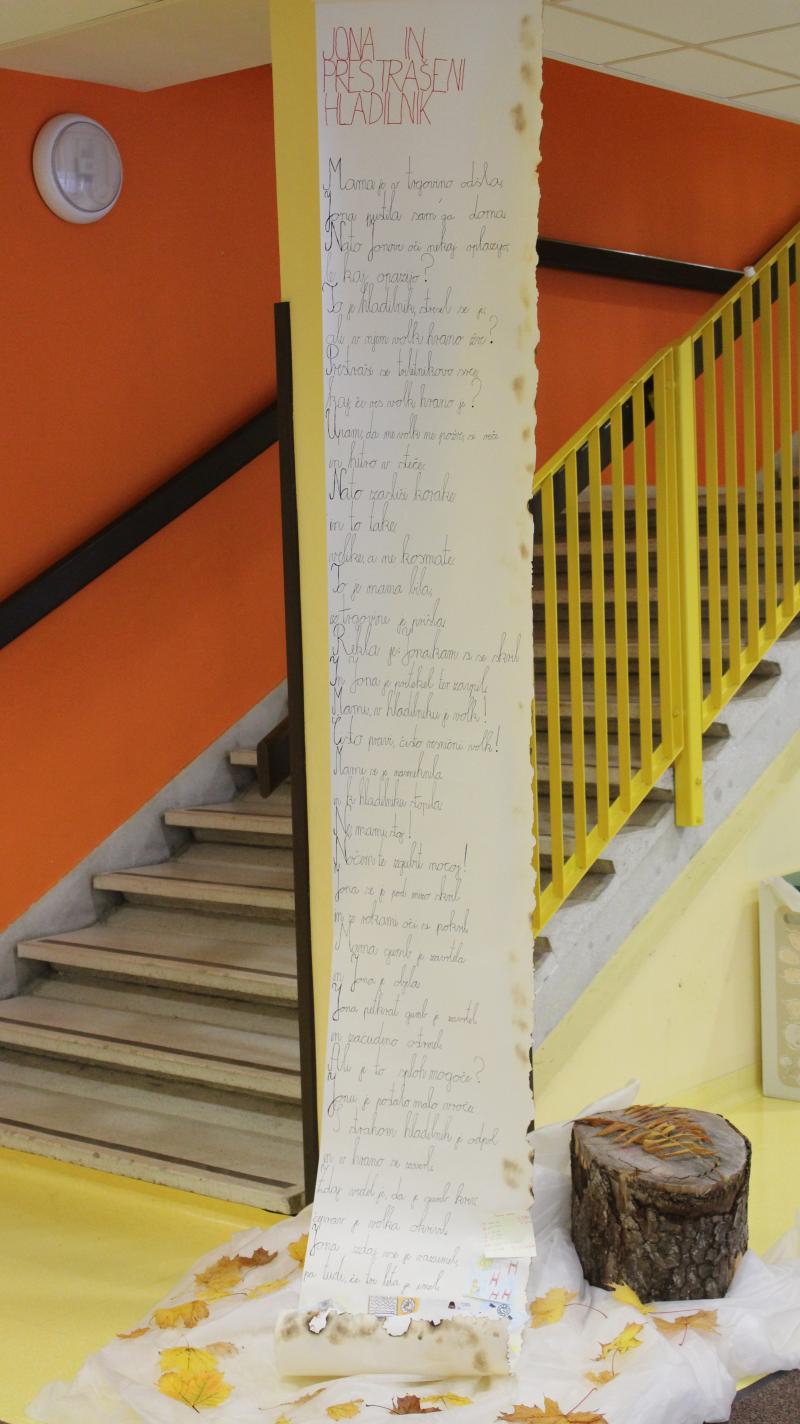 JONA IN
PRESTRAŠENI
HLADILNIK
Mama je v trgovino odšla,
Jona pustila sam'ga doma.
Nato Jonove oči nekaj opazijo,
le kaj opazijo?
To je hladilnik, stresel se je,
ali v njem volk hrano žre?
Prestraši se triletnikovo srce,
kaj če res volk hrano je?
Upam, da me volk ne požre, si reče
in hitro v steče.
Nato zasliši korake
in to take,
velike, a ne kosmate.
To je mama bila,
iz trgovine je prišla.
Rekla je: Jona kam si se skril
In Jona je pritekel ter zavpil:
Mami, v hladilniku je volk!
Čisto pravi, čisto resnični volk!
Mami se je nasmehnila
in k hladilniku stopila.
Ne mami, stoj!
Nočem te izgubiti nocoj!
Jona se je pod mizo skril
in z rokami oči si pokril.
Mama gumb je zavrtela
in Jona je objela.
Jona petkrat gumb je zavrtel
in začudeno ostrmel.
Ali je to sploh mogoče?
Jonu je postalo malo vroče.
S strahom hladilnik je odprl
in v hrano se zazrl.
Zdaj vedel je, da je gumb kriv,
čeprav je volka okrivil.
Jona zdaj vse je razumel,
pa tudi, če tri leta je imel.